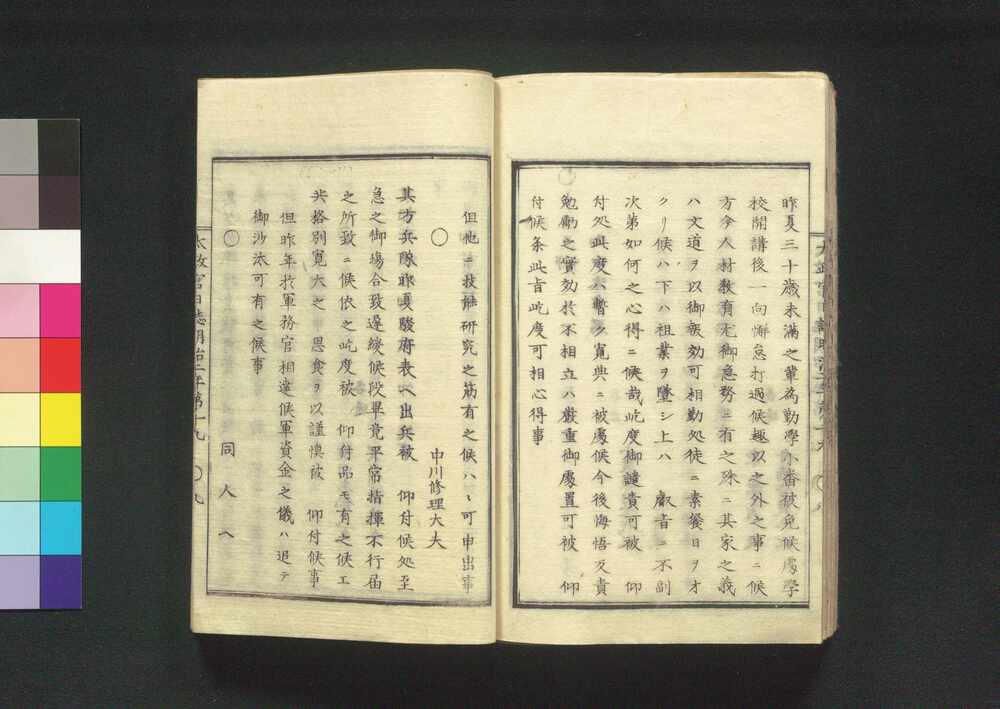 昨夏三十歳未満之輩為勤学小番被免候處学
校開講後一向懈怠打過候趣以之外之事ニ候
方今人材教育尤御急務ニ有之殊ニ其家之義
ハ文道ヲ以御報効可相勤処徒ニ素餐日ヲオ
クリ候ハ下ハ祖業ヲ墜シ上ハ 叡旨ニ不副
次第如何之心得ニ候哉屹度御譴責可被 仰
付処此度ハ暫ク寛典ニ被處候今後悔悟及責
勉励之實効於不相立ハ厳重御處置可被 仰
付候条此旨屹度可相心得事
但他ニ技能研究之筋有之候ハヽ可申出事
○ 中川修理大夫
其方兵隊昨夏駿府表ヘ出兵被 仰付候処至
急之御場合致遅緩候段畢竟平常指揮不行届
之所致ニ候依之屹度被 仰付品モ有之候エ
共格別寛大之 思食ヲ以謹慎被 仰付候事
○ 同人ヘ
但昨年於軍務官相達候軍資金之儀ハ追テ
御沙汰可有之候事
太政官日誌明治二年第十九 ○九